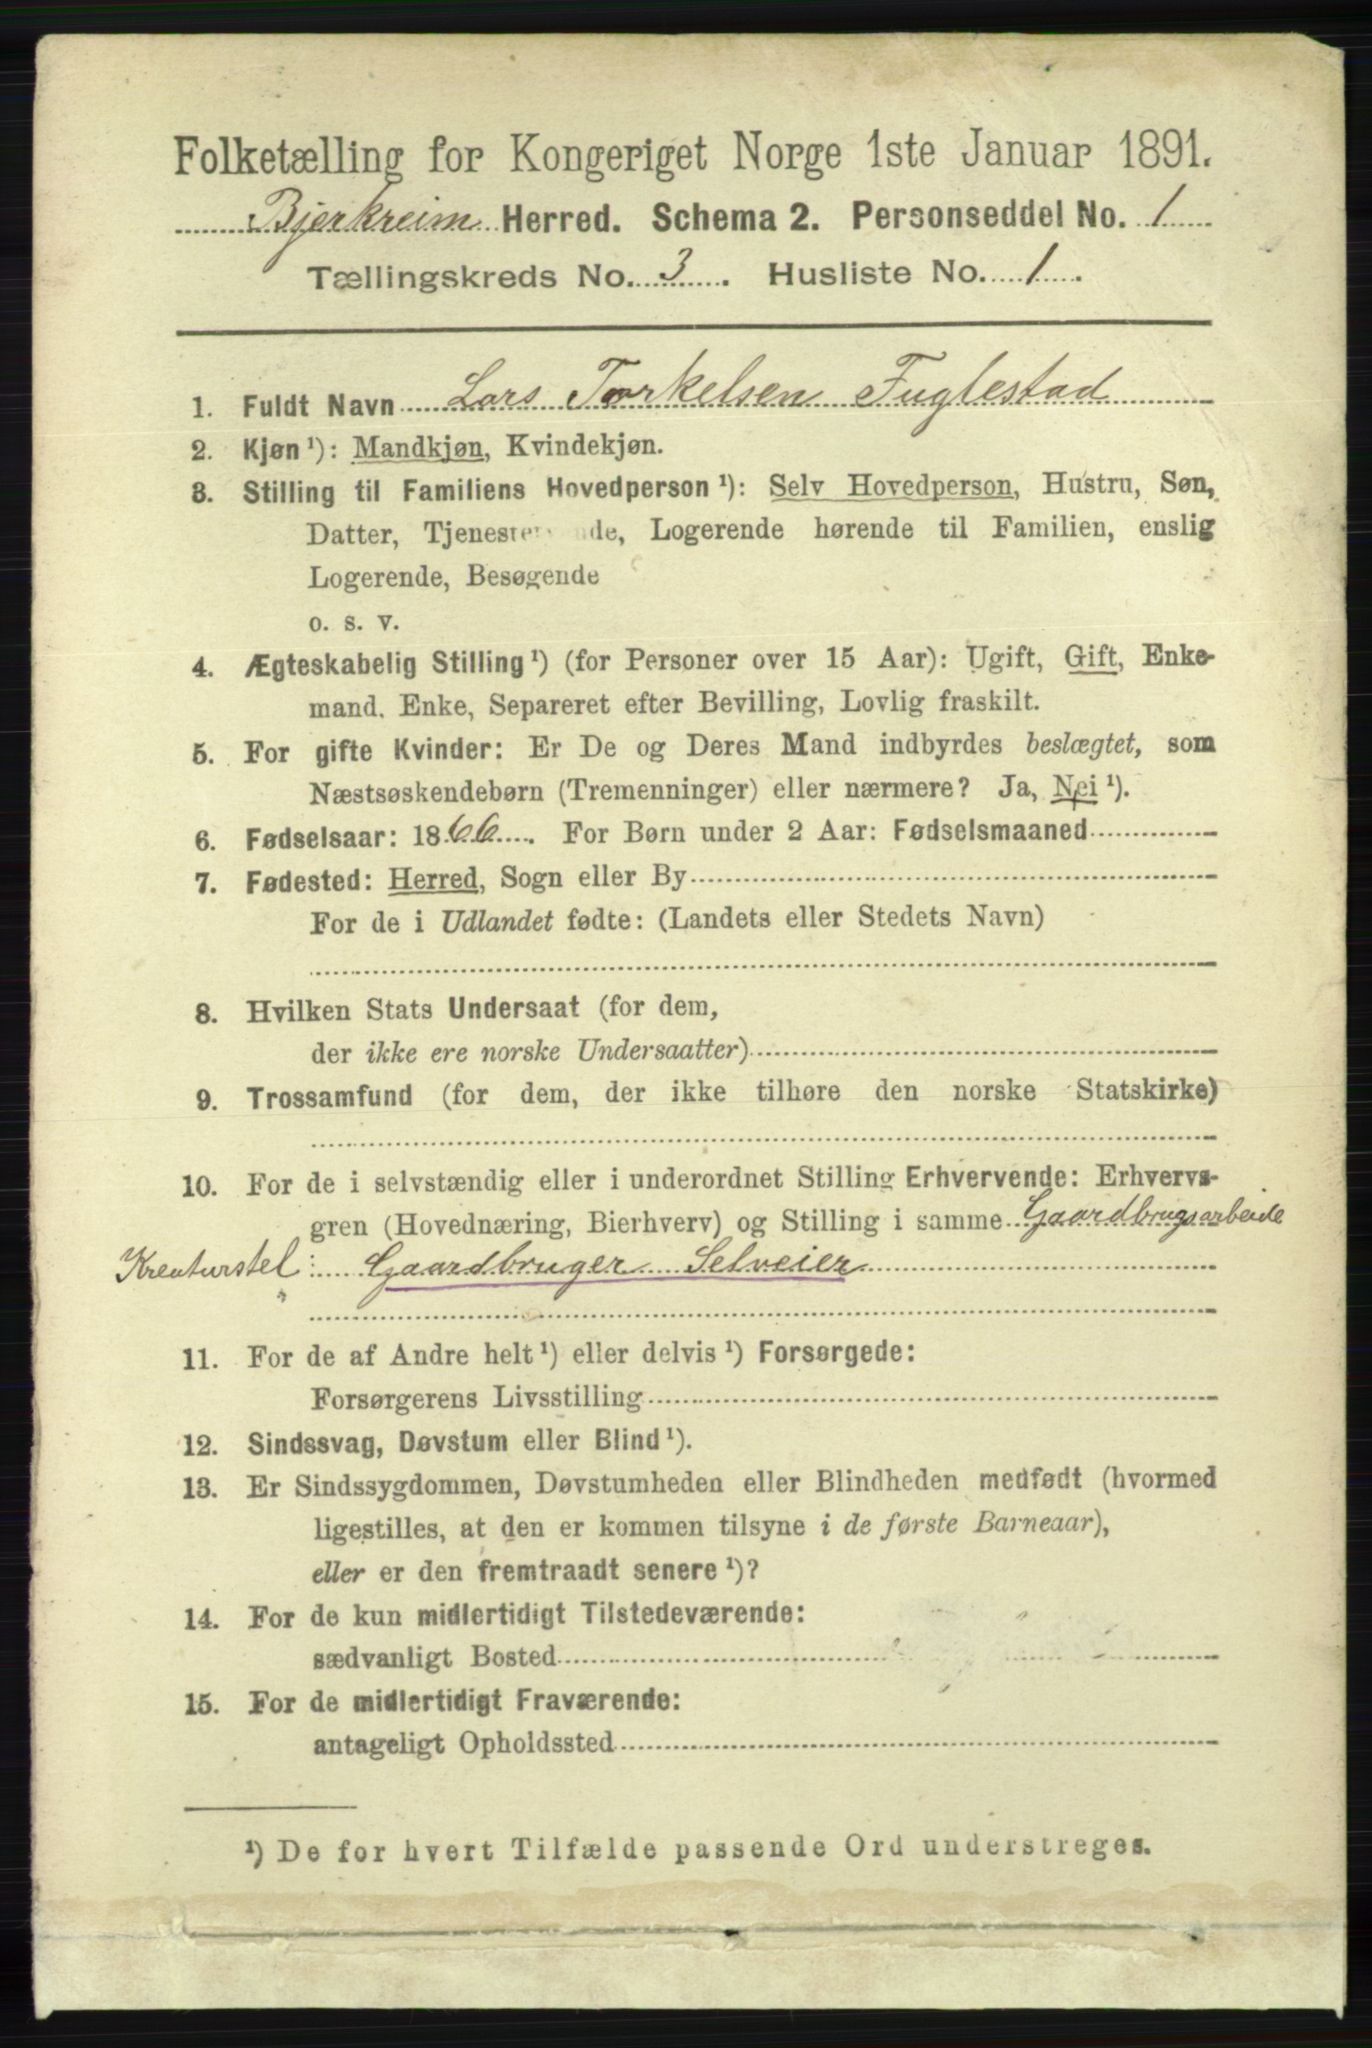 Folketælling for Kongeriget Norge 1ste Januar 1891.
Bjerkreim Herred. Schema 2. Personseddel No. 1
Tællingskreds No. 3. Husliste No. 1.
1. Fuldt Navn Lars Torkelsen Fuglestad
2. Kjøn¹): Mandkjøn, Kvindekjøn.
3. Stilling til Familiens Hovedperson¹): Selv Hovedperson, Hustru, Søn,
Datter, Tjenestetyende, Logerende hørende til Familien, enslig
Logerende, Besøgende
o. s. v.
4. Ægteskabelig Stilling¹) (for Personer over 15 Aar): Ugift, Gift, Enke-
mand, Enke, Separeret efter Bevilling, Lovlig fraskilt.
5. For gifte Kvinder: Er De og Deres Mand indbyrdes beslægtet, som
Næstsøskendebørn (Tremenninger) eller nærmere? Ja, Nei¹).
6. Fødselsaar: 1866. For Børn under 2 Aar: Fødselsmaaned
7. Fødested: Herred, Sogn eller By
For de i Udlandet fødte: (Landets eller Stedets Navn)
8. Hvilken Stats Undersaat (for dem,
der ikke ere norske Undersaatter)
9. Trossamfund (for dem, der ikke tilhøre den norske Statskirke)
10. For de i selvstændig eller i underordnet Stilling Erhvervende: Erhvervs-
gren (Hovednæring, Bierhverv) og Stilling i samme Gaardbrugsarbeide
Kreaturstel: Gaardbruger Selveier
11. For de af Andre helt¹) eller delvis¹) Forsørgede:
Forsørgerens Livsstilling
12. Sindssvag, Døvstum eller Blind¹).
13. Er Sindssygdommen, Døvstumheden eller Blindheden medfødt (hvormed
ligestilles, at den er kommen tilsyne i de første Barneaar),
eller er den fremtraadt senere¹)?
14. For de kun midlertidigt Tilstedeværende:
sædvanligt Bosted
15. For de midlertidigt Fraværende:
antageligt Opholdssted
¹) De for hvert Tilfælde passende Ord understreges.